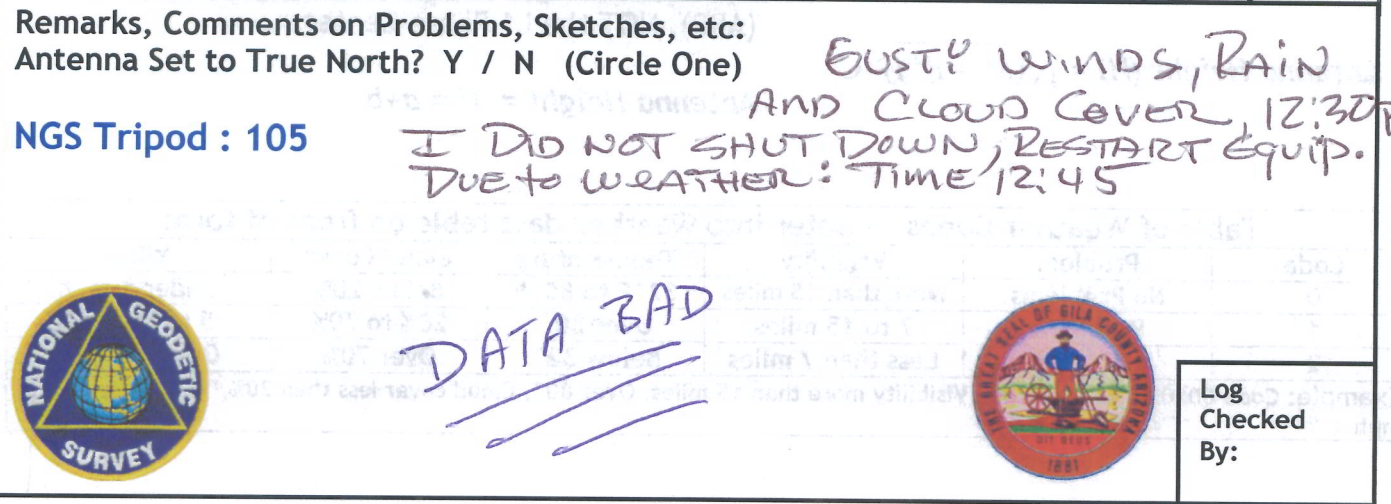 Remarks, Comments on Problems, Sketches, etc:
Antenna Set to True North? Y / N (Circle One)
GUSTY WINDS, RAIN
AND CLOUD COVER, 12:30P
NGS Tripod : 105
I DID NOT SHUT DOWN, RESTART EQUIP.
DUE to WEATHER: TIME 12:45
DATA BAD
NATIONAL GEODETIC SURVEY
THE GREAT SEAL OF GILA COUNTY ARIZONA
DIT DEUS
1881
Log
Checked
By: